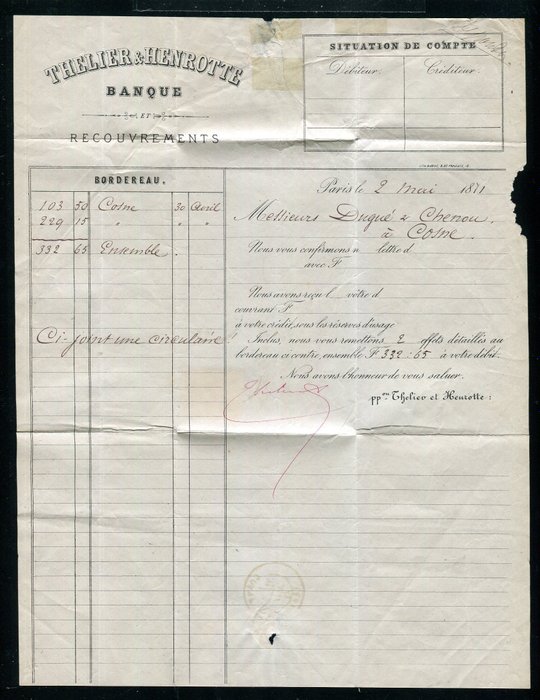 THELIER & HENROTTE
BANQUE
ET
RECOUVREMENTS
SITUATION DE COMPTE
Débiteur. Créditeur.
BORDEREAU.
103 50 Cosne 30 Avril
229 15 " " "
332 65 Ensemble.
Ci-joint une circulaire
Paris le 2 Mai 1871
Messieurs Dugué & Chenou,
à Cosne.
Nous vous confirmons n lettre d
avec F
Nous avons reçu l votre d
couvrant F
à votre crédit, sous les réserves d'usage
Inclus, nous vous remettons 2 effets détaillés au
bordereau ci contre, ensemble F 332:65 à votre débit.
Nous avons l'honneur de vous saluer.
ppon Thelier et Henrotte: